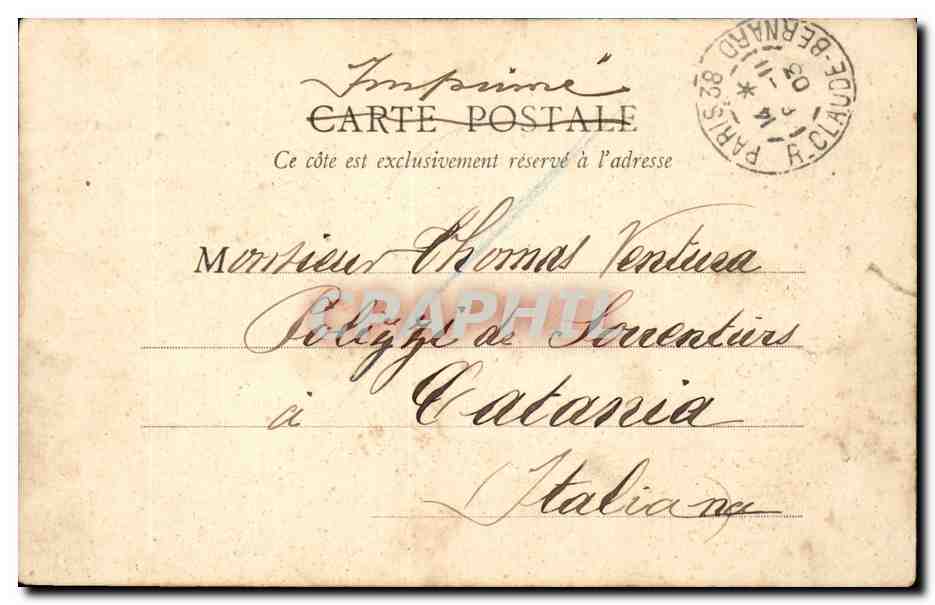 Imprimé
CARTE POSTALE
Ce côte est exclusivement réservé à l'adresse
PARIS_28 R-CLAUDE-BERNARD
14 * -11
03
Monsieur Thomas Ventura
Polizzi de Sorrentins
à Catania
Italiana
CPAPHIL